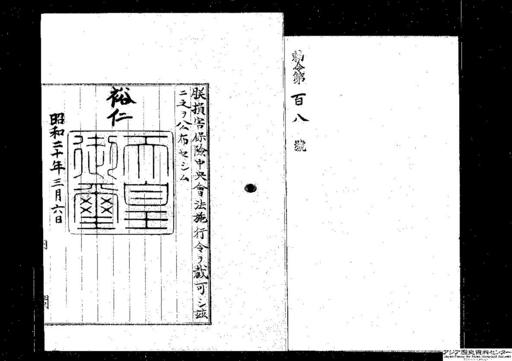 勅令第百八號
朕損害保險中央會法施行令ヲ裁可シ茲
ニ之ヲ公布セシム
裕仁
天皇御璽
昭和二十年三月六日
アジア歴史資料センター